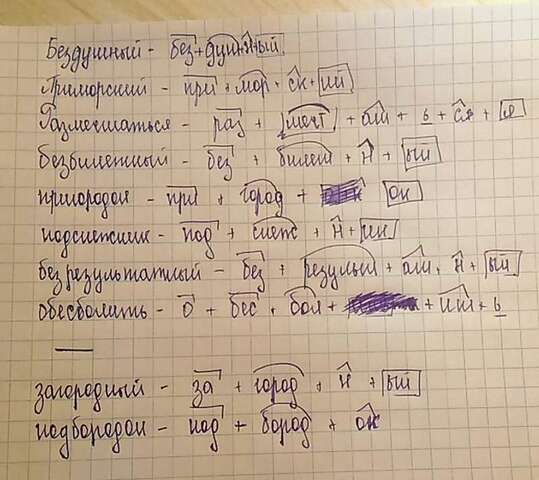 Бездушный - без+душ+н+ый
Приморский - при+мор+ск+ий
Размечтаться - раз + мечт + ать + ь + ся + я
безбилетный - без + билет + н + ый
пригородок - при + город + ок
подснежник - под + снеж + н + ик
безрезультатный - без + результ + ат + н + ый
обезболить - о + бес + бол + ит + ь
загородный - за + город + н + ый
подбородок - под + бород + ок